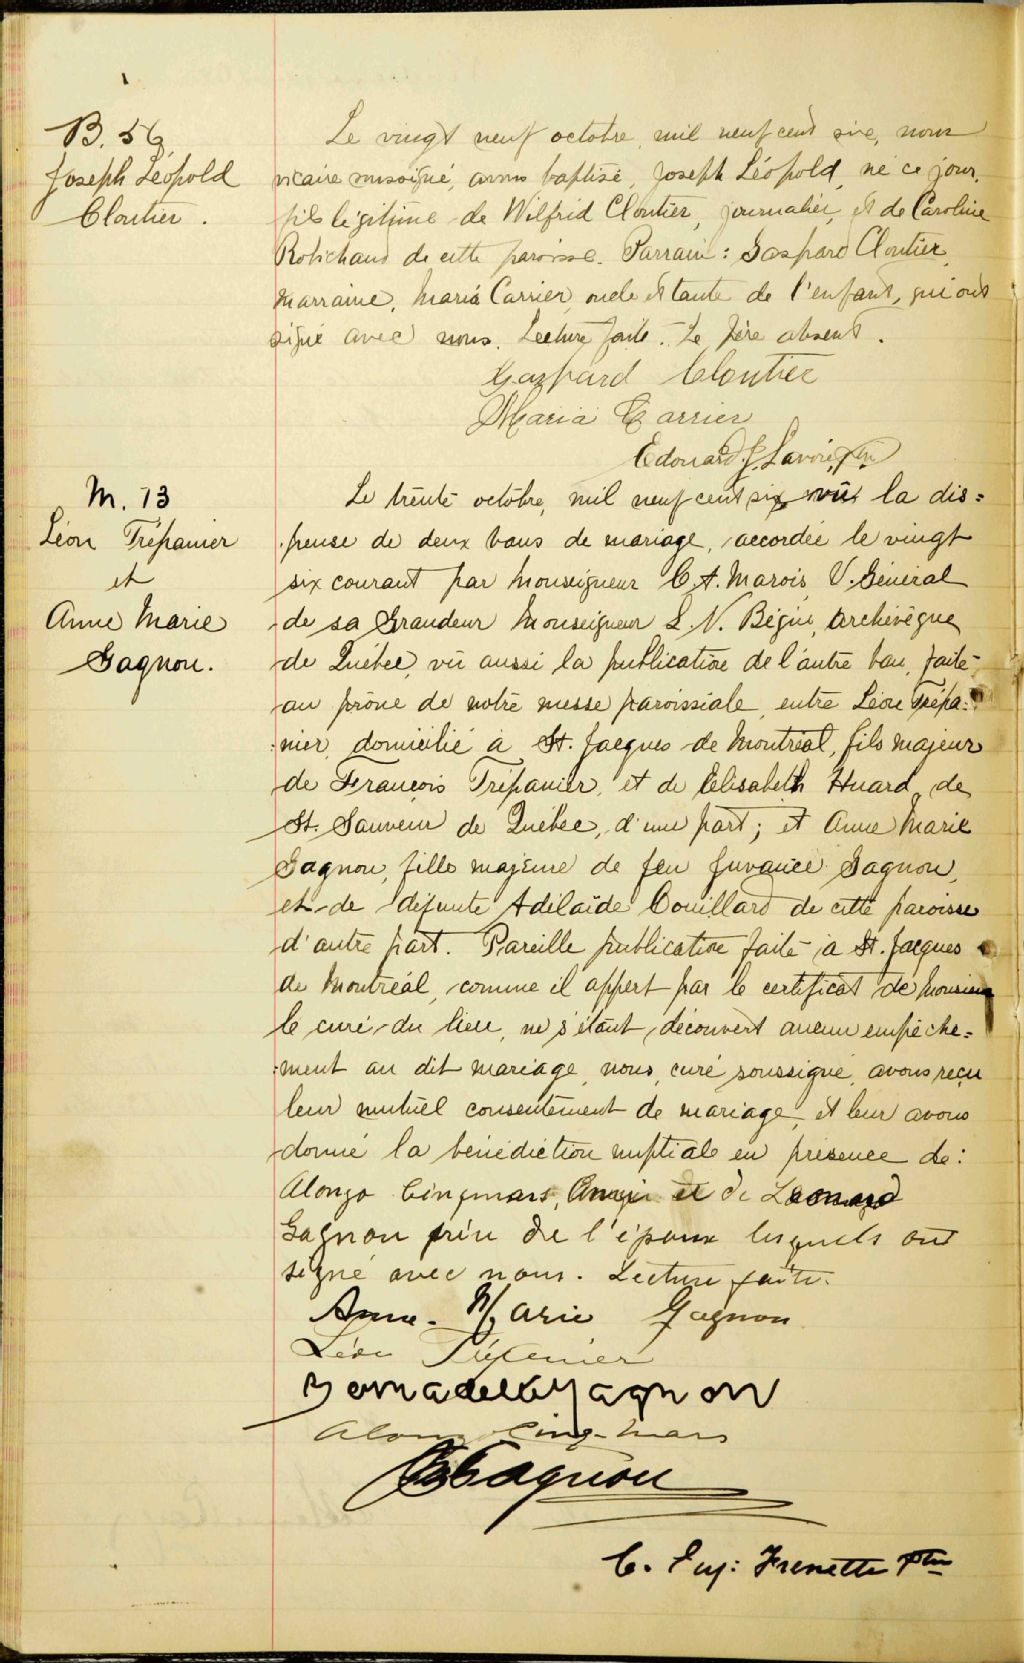 B. 56
Joseph Léopold
Cloutier.
Le vingt neuf octobre, mil neuf cent six, nous
vicaire soussigné, avons baptisé, Joseph Léopold, né ce jour,
fils légitime de Wilfrid Cloutier, journalier, et de Caroline
Robichaud de cette paroisse. Parrain: Gaspard Cloutier,
marraine, Maria Carrier, oncle et tante de l'enfant, qui ont
signé avec nous. Lecture faite. Le père absent.
Gaspard Cloutier
Maria Carrier
Edouard J. Lavoie, ptre
M. 13
Léon Trépanier
et
Anne Marie
Gagnon.
Le trente octobre, mil neuf cent six, vû la dis=
pense de deux bans de mariage, accordée le vingt
six courant par Monseigneur C. A. Marois, V. Général
de sa Grandeur Monseigneur L. N. Bégin, archevêque
de Québec, vû aussi la publication de l'autre ban, faite
au prône de notre messe paroissiale, entre Léon Trépa=
=nier, domicilié à St. Jacques de Montréal, fils majeur
de François Trépanier, et de Elisabeth Huard, de
St. Sauveur de Québec, d'une part; et Anne Marie
Gagnon, fille majeure de feu Gagnon,
et de défunte Adélaïde Couillard de cette paroisse
d'autre part. Pareille publication faite à St. Jacques
de Montréal, comme il appert par le certificat de Monsieur
le curé du lieu, ne s'étant découvert aucun empêche=
=ment au dit mariage, nous, curé soussigné, avons reçu
leur mutuel consentement de mariage, et leur avons
donné la bénédiction nuptiale en présence de:
Alonzo Cinqmars, et de Léonard
Gagnon de l'épouse lesquels ont
signé avec nous. Lecture faite.
Anne-Marie Gagnon
Léon Trépanier
Bernadette Gagnon
Alonzo Cinq-Mars
Gagnon
C. Eug: Frenette Ptre